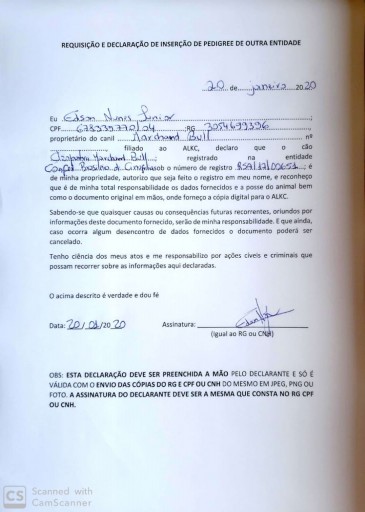 REQUISIÇÃO E DECLARAÇÃO DE INSERÇÃO DE PEDIGREE DE OUTRA ENTIDADE
20 de janeiro 2020
Eu Edson Nunes Junior
CPF 678939770/04 ;RG 7054699396 ,
proprietário do canil Marchand Bull nº
filiado ao ALKC, declaro que o cão
Marchand Bull registrado na entidade
Brasileira de sob o número de registro ; é
de minha propriedade, autorizo que seja feito o registro em meu nome, e reconheço
que é de minha total responsabilidade os dados fornecidos e a posse do animal bem
como o documento original em mãos, onde forneço a cópia digital para o ALKC.
Sabendo-se que quaisquer causas ou consequências futuras recorrentes, oriundos por
informações deste documento fornecido, serão de minha responsabilidade. E que ainda,
caso ocorra algum desencontro de dados fornecidos o documento poderá ser
cancelado.
Tenho ciência dos meus atos e me responsabilizo por ações cíveis e criminais que
possam recorrer sobre as informações aqui declaradas.
O acima descrito é verdade e dou fé
Data: 20/01/2020 Assinatura:
(Igual ao RG ou CNH)
OBS: ESTA DECLARAÇÃO DEVE SER PREENCHIDA A MÃO PELO DECLARANTE E SÓ É
VÁLIDA COM O ENVIO DAS CÓPIAS DO RG E CPF OU CNH DO MESMO EM JPEG, PNG OU
FOTO. A ASSINATURA DO DECLARANTE DEVE SER A MESMA QUE CONSTA NO RG CPF
OU CNH.
CS Scanned with
CamScanner